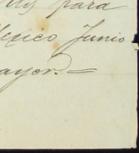 para
Mexico Junio
ayor. =